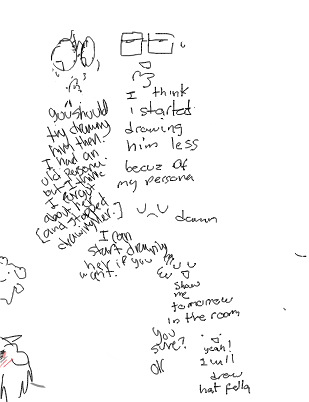 you should
try drawing
him then.
I had an
old persona.
but I think
I forgot
about her
[and stopped
drawing her.]
I think
i started
drawing
him less
becuz of
my persona
damn
I can
start drawing
her if you
want.
show
me
tomorrow
in the room
you
sure?
yeah!
I will
draw
hat fella